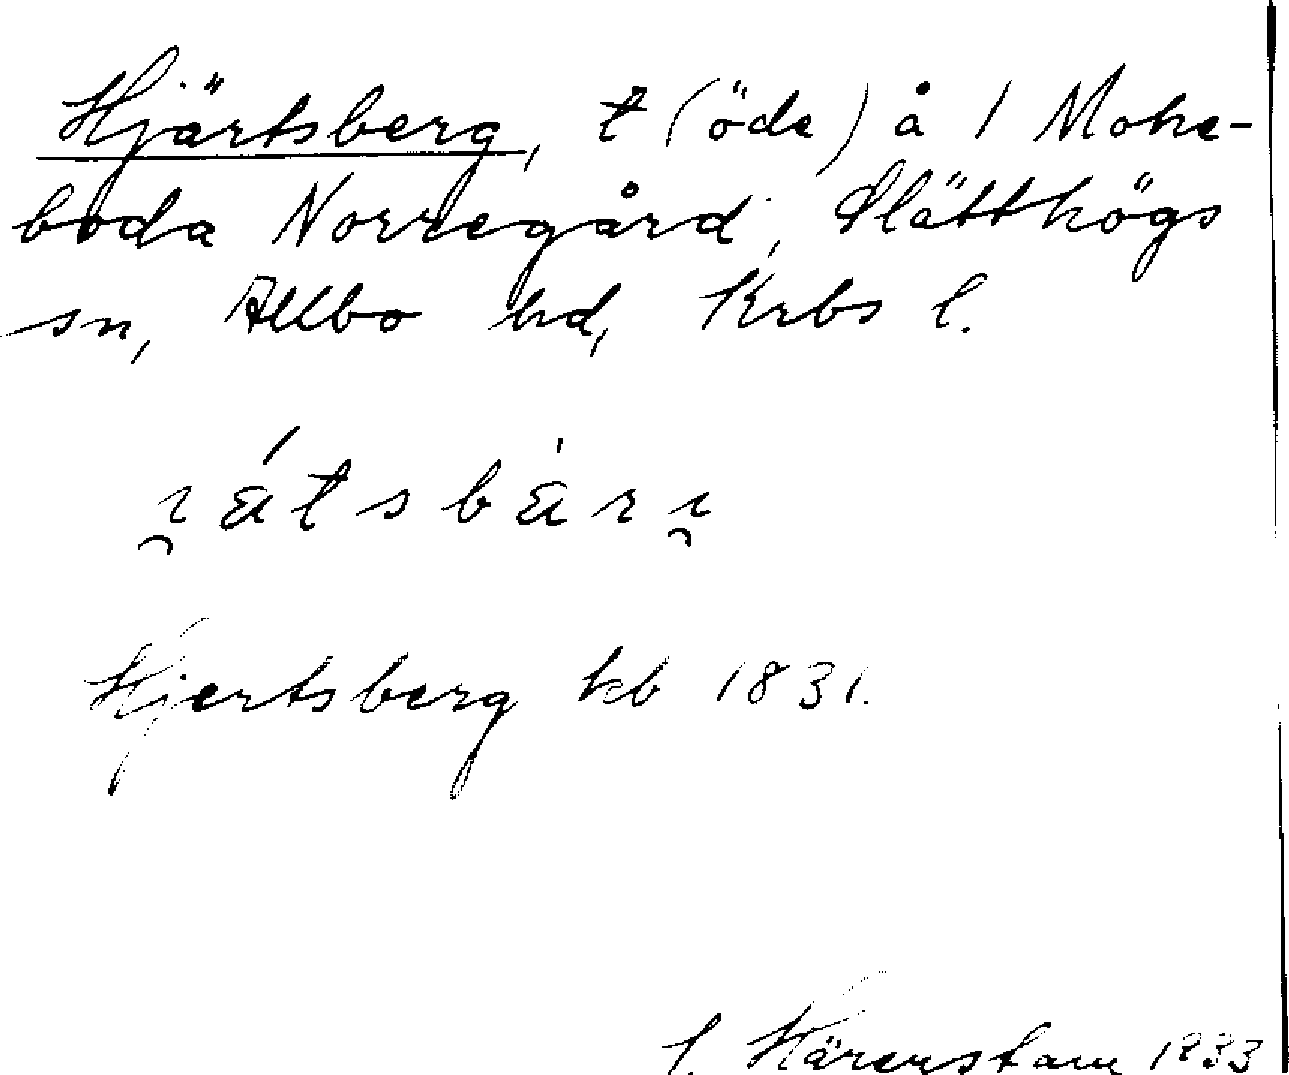 Hjärtsberg, t (öde) å 1 Mohe-
boda Norregård, Slätthögs
sn, Allbo hd, Krbs l.
Hjertsberg kb 1831.
Härenstam 1933